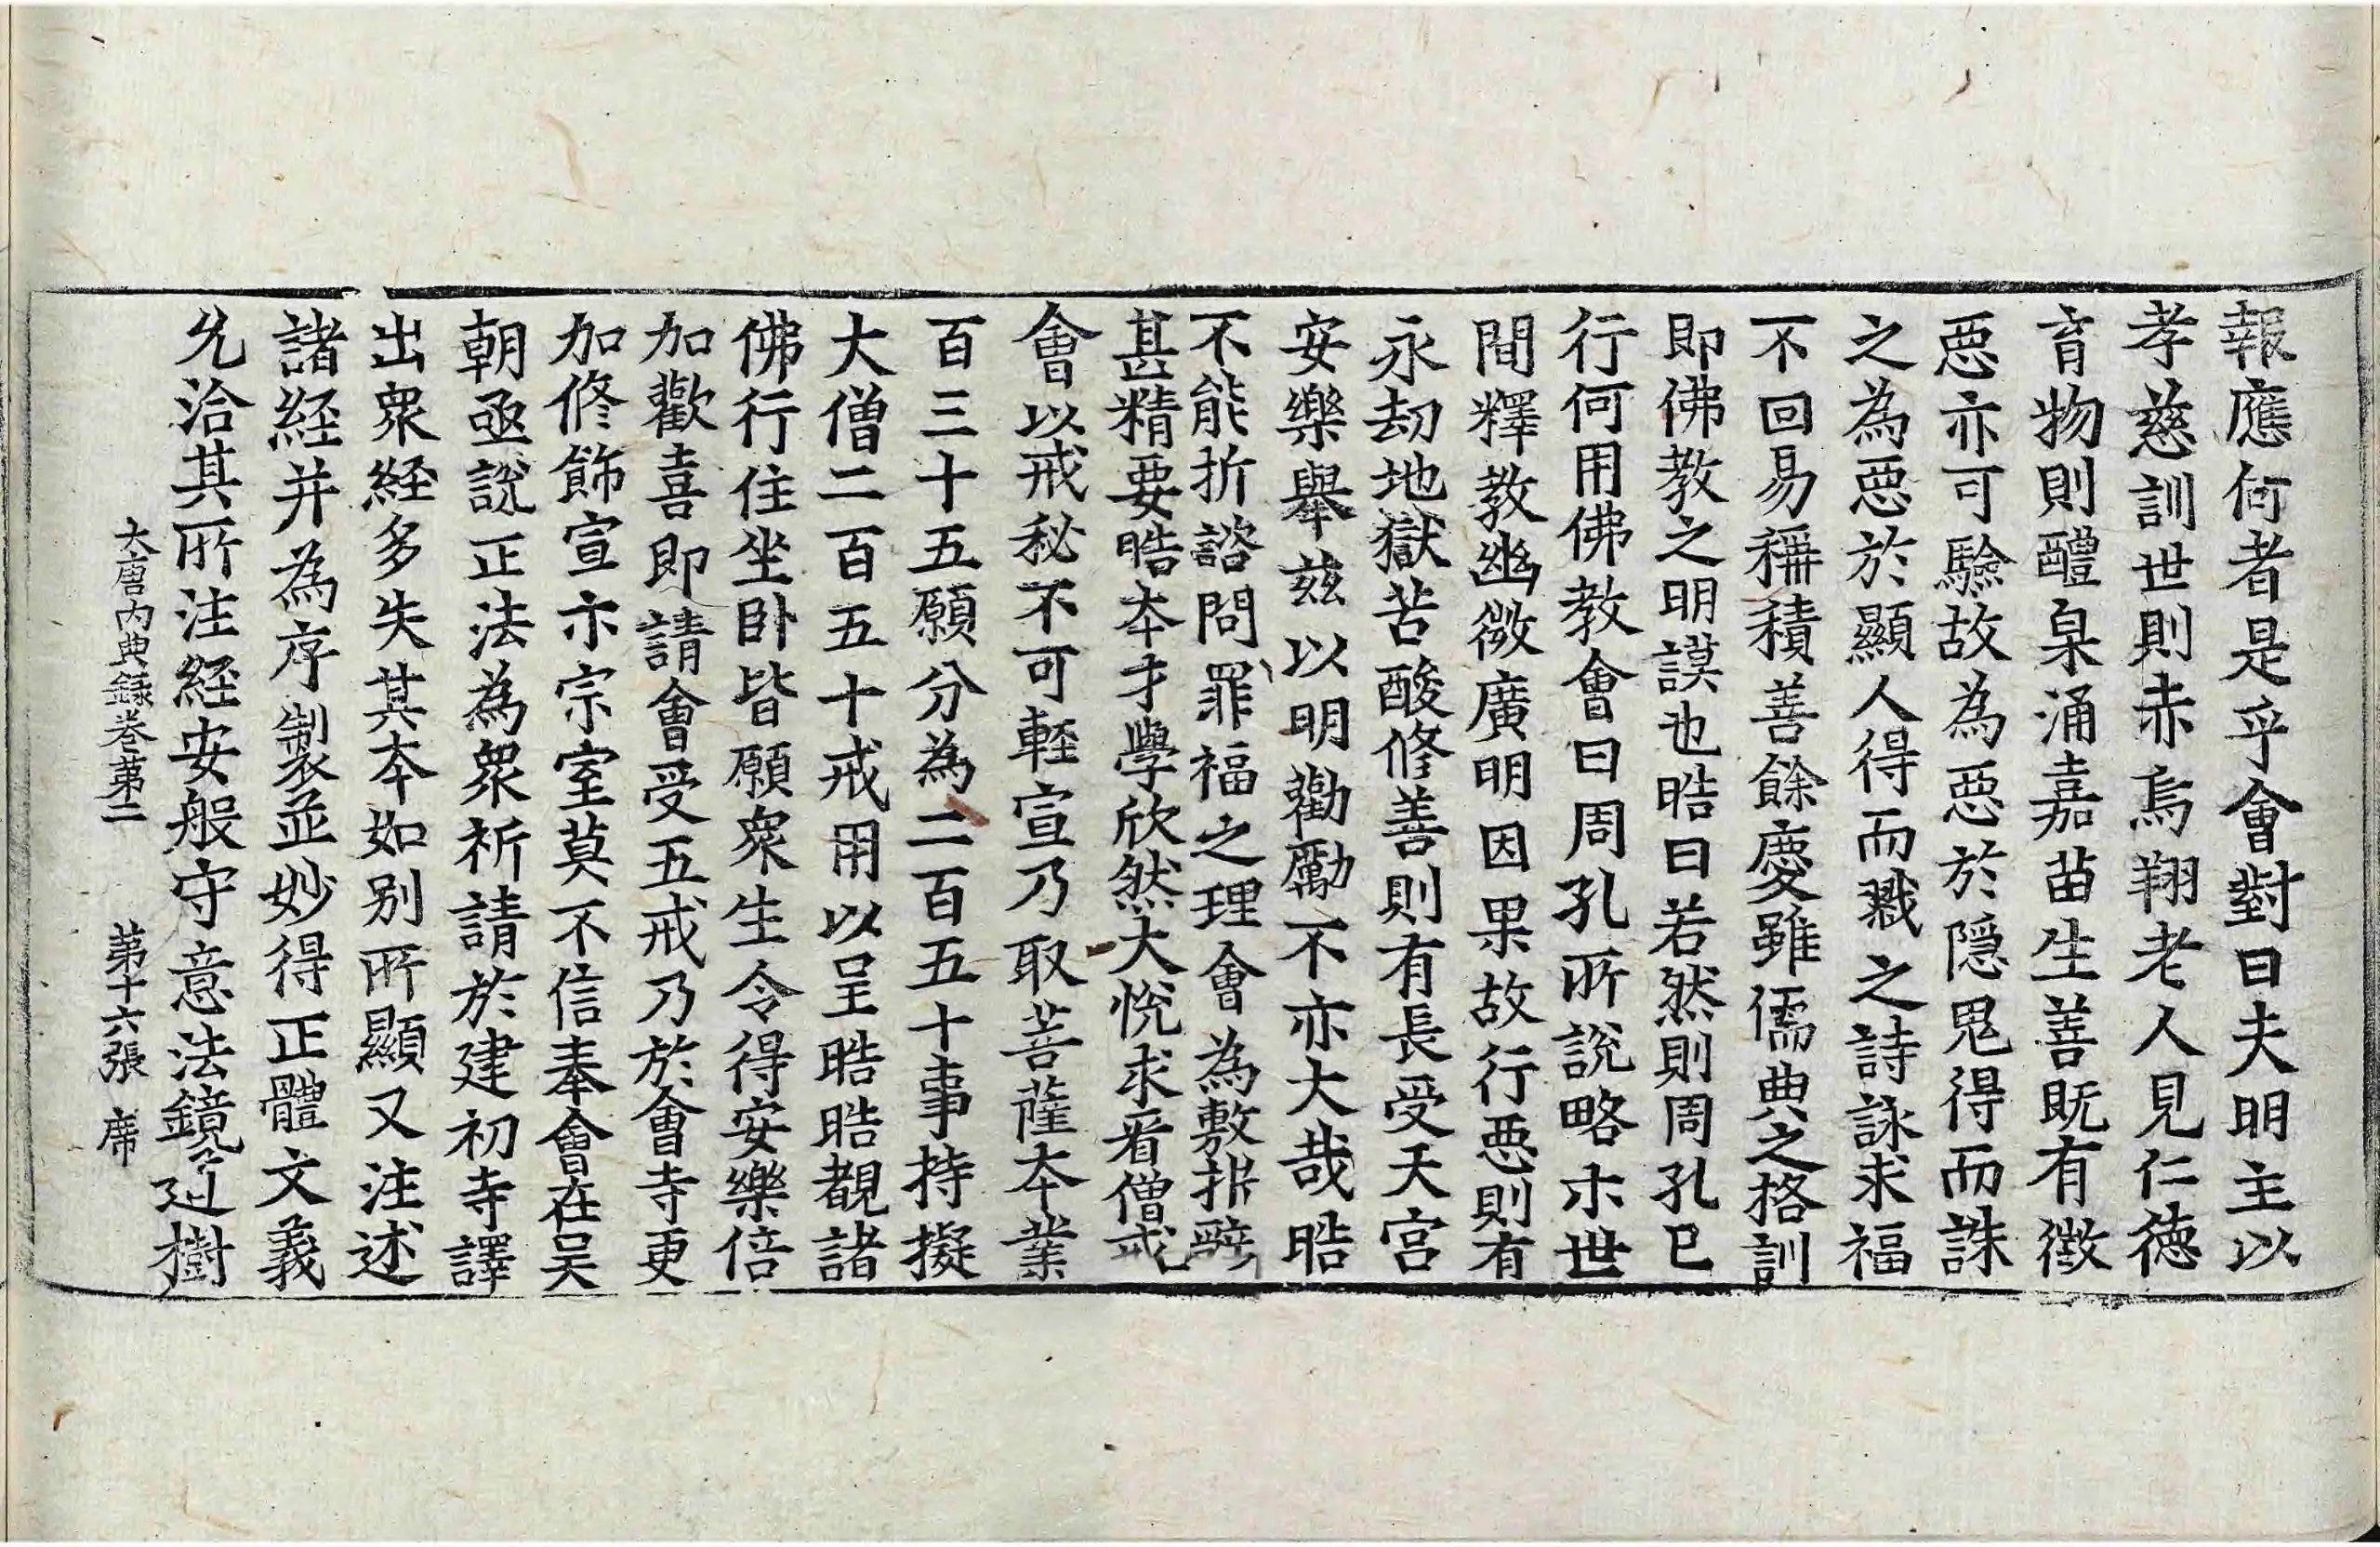 報應何者是乎會對曰夫明主以
孝慈訓世則赤烏翔老人見仁德
育物則醴泉涌嘉苗生善既有徵
惡亦可驗故為惡於隱鬼得而誅
之為惡於顯人得而戮之詩詠求福
不回易稱積善餘慶雖儒典之格訓
即佛教之明謨也晧曰若然則周孔已
行何用佛教會曰周孔所說略示世
間釋教幽微廣明因果故行惡則有
永劫地獄苦酸修善則有長受天宮
安樂舉茲以明勸勵不亦大哉晧
不能折諮問罪福之理會為敷析辭
甚精要晧本才學欣然大悅求看僧戒
會以戒秘不可輕宣乃取菩薩本業
百三十五願分為二百五十事持擬
大僧二百五十戒用以呈晧晧覩諸
佛行住坐卧皆願衆生令得安樂倍
加歡喜即請會受五戒乃於會寺更
加修飾宣示宗室莫不信奉會在吴
朝亟說正法為衆祈請於建初寺譯
出衆経多失其本如别所顯又注述
諸経并為序製並妙得正體文義
允洽其所注経安般守意法鏡道樹
大唐内典録卷第二 第十六張 席